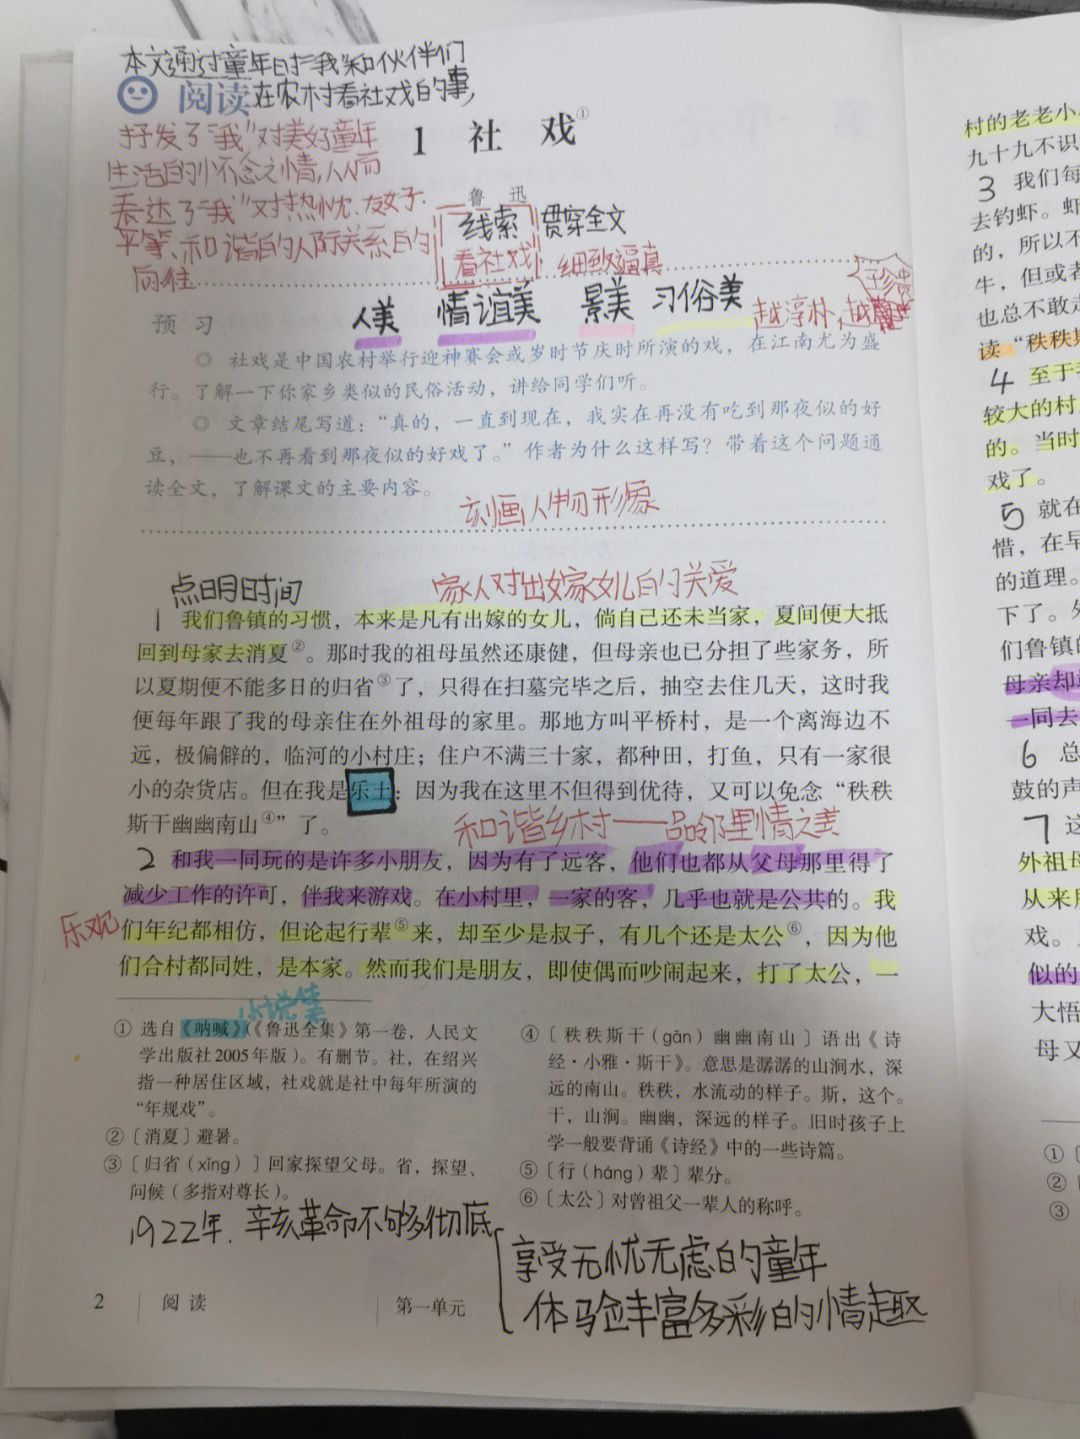 本文通过童年时"我"和伙伴们
阅读 在农村看社戏的事,
抒发了"我"对美好童年
生活的怀念之情,从而
表达了"我"对热忱、友好、
平等、和谐的人际关系的
向往
1 社 戏①
鲁 迅
线索 贯穿全文
看社戏 细致逼真
人美 情谊美 景美 习俗美
越淳朴,越
珍贵
预 习
◎ 社戏是中国农村举行迎神赛会或岁时节庆时所演的戏,在江南尤为盛
行。了解一下你家乡类似的民俗活动,讲给同学们听。
◎ 文章结尾写道:“真的,一直到现在,我实在再没有吃到那夜似的好
豆,——也不再看到那夜似的好戏了。”作者为什么这样写?带着这个问题通
读全文,了解课文的主要内容。
刻画人物形象
点明时间 家人对出嫁女儿的关爱
1 我们鲁镇的习惯,本来是凡有出嫁的女儿,倘自己还未当家,夏间便大抵
回到母家去消夏②。那时我的祖母虽然还康健,但母亲也已分担了些家务,所
以夏期便不能多日的归省③了,只得在扫墓完毕之后,抽空去住几天,这时我
便每年跟了我的母亲住在外祖母的家里。那地方叫平桥村,是一个离海边不
远,极偏僻的,临河的小村庄;住户不满三十家,都种田,打鱼,只有一家很
小的杂货店。但在我是乐土:因为我在这里不但得到优待,又可以免念“秩秩
斯干幽幽南山④”了。
和谐乡村——邻里情之美
2 和我一同玩的是许多小朋友,因为有了远客,他们也都从父母那里得了
减少工作的许可,伴我来游戏。在小村里,一家的客,几乎也就是公共的。我
乐观
们年纪都相仿,但论起行辈⑤来,却至少是叔子,有几个还是太公⑥,因为他
们合村都同姓,是本家。然而我们是朋友,即使偶而吵闹起来,打了太公,一
小说集
① 选自《呐喊》(《鲁迅全集》第一卷,人民文
学出版社2005年版)。有删节。社,在绍兴
指一种居住区域,社戏就是社中每年所演的
“年规戏”。
②〔消夏〕避暑。
③〔归省(xǐng)〕回家探望父母。省,探望、
问候(多指对尊长)。
④〔秩秩斯干(gān)幽幽南山〕语出《诗
经·小雅·斯干》。意思是潺潺的山涧水,深
远的南山。秩秩,水流动的样子。斯,这个。
干,山涧。幽幽,深远的样子。旧时孩子上
学一般要背诵《诗经》中的一些诗篇。
⑤〔行(háng)辈〕辈分。
⑥〔太公〕对曾祖父一辈人的称呼。
1922年.辛亥革命不够彻底
享受无忧无虑的童年
体验丰富多彩的情趣
2 阅读 第一单元
村的老老小
九十九不识
3 我们每
去钓虾。虾
的,所以不
牛,但或者
也总不敢走
读“秩秩斯
4 至于
较大的村
的。当时
戏了。
5 就在
惜,在早
的道理。
下了。
们鲁镇的
母亲却
一同去
6 总
鼓的声
7 这
外祖母
从来
戏。
似的
大悟
母又
①〔
②
③